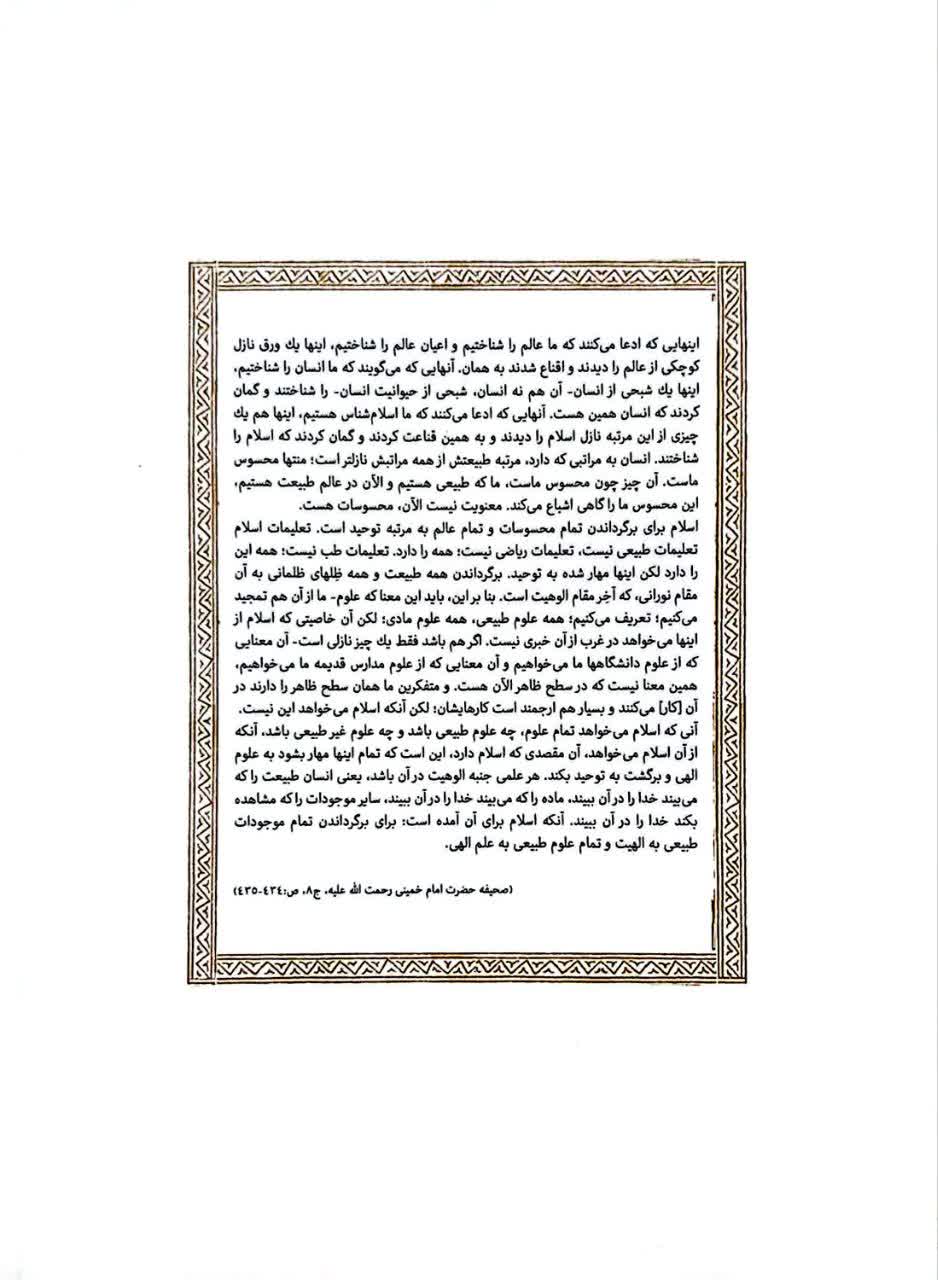 اینهایی که ادعا می‌کنند که ما عالم را شناختیم و اعیان عالم را شناختیم، اینها یك ورق نازل
کوچکی از عالم را دیدند و اقناع شدند به همان. آنهایی که می‌گویند که ما انسان را شناختیم،
اینها یك شبحی از انسان- آن هم نه انسان، شبحی از حیوانیت انسان- را شناختند و گمان
کردند که انسان همین هست. آنهایی که ادعا می‌کنند که ما اسلام‌شناس هستیم، اینها هم یك
چیزی از این مرتبه نازل اسلام را دیدند و به همین قناعت کردند و گمان کردند که اسلام را
شناختند. انسان به مراتبی که دارد، مرتبه طبیعتش از همه مراتبش نازلتر است؛ منتها محسوس
ماست. آن چیز چون محسوس ماست، ما که طبیعی هستیم و الآن در عالم طبیعت هستیم،
این محسوس ما را گاهی اشباع می‌کند. معنویت نیست الآن، محسوسات هست.
اسلام برای برگرداندن تمام محسوسات و تمام عالم به مرتبه توحید است. تعلیمات اسلام
تعلیمات طبیعی نیست، تعلیمات ریاضی نیست؛ همه را دارد. تعلیمات طب نیست؛ همه این
را دارد لکن اینها مهار شده به توحید. برگرداندن همه طبیعت و همه ظِلهای ظلمانی به آن
مقام نورانی، که آخِر مقام الوهیت است. بنا بر این، باید این معنا که علوم- ما از آن هم تمجید
می‌کنیم؛ تعریف می‌کنیم؛ همه علوم طبیعی، همه علوم مادی؛ لکن آن خاصیتی که اسلام از
اینها می‌خواهد در غرب از آن خبری نیست. اگر هم باشد فقط یك چیز نازلی است- آن معنایی
که از علوم دانشگاهها ما می‌خواهیم و آن معنایی که از علوم مدارس قدیمه ما می‌خواهیم،
همین معنا نیست که در سطح ظاهر الآن هست. و متفکرین ما همان سطح ظاهر را دارند در
آن [کار] می‌کنند و بسیار هم ارجمند است کارهایشان؛ لکن آنکه اسلام می‌خواهد این نیست.
آنی که اسلام می‌خواهد تمام علوم، چه علوم طبیعی باشد و چه علوم غیر طبیعی باشد، آنکه
از آن اسلام می‌خواهد، آن مقصدی که اسلام دارد، این است که تمام اینها مهار بشود به علوم
الهی و برگشت به توحید بکند. هر علمی جنبه الوهیت در آن باشد، یعنی انسان طبیعت را که
می‌بیند خدا را در آن ببیند، ماده را که می‌بیند خدا را در آن ببیند، سایر موجودات را که مشاهده
بکند خدا را در آن ببیند. آنکه اسلام برای آن آمده است: برای برگرداندن تمام موجودات
طبیعی به الهیت و تمام علوم طبیعی به علم الهی.
(صحیفه حضرت امام خمینی رحمت الله علیه، ج۸، ص:٤٣٤-٤٣٥)